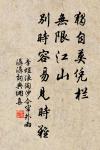 獨自莫憑欄
無限江山
別時容易見時難
李煜浪淘沙令簾外雨
潺潺詞典網書